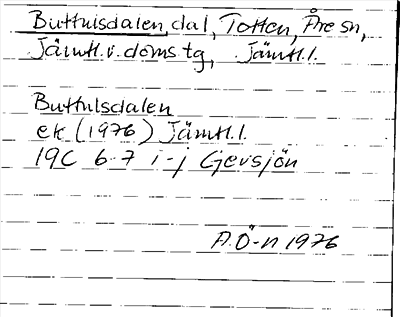 Butthulsdalen, dal, Totten, Åre sn,
Jämtl. v. doms. tg, Jämtl. l.
Butthulsdalen
ek (1976) Jämtl. l.
19C 6-7 i-j Gevsjön
A.Ö-n 1976